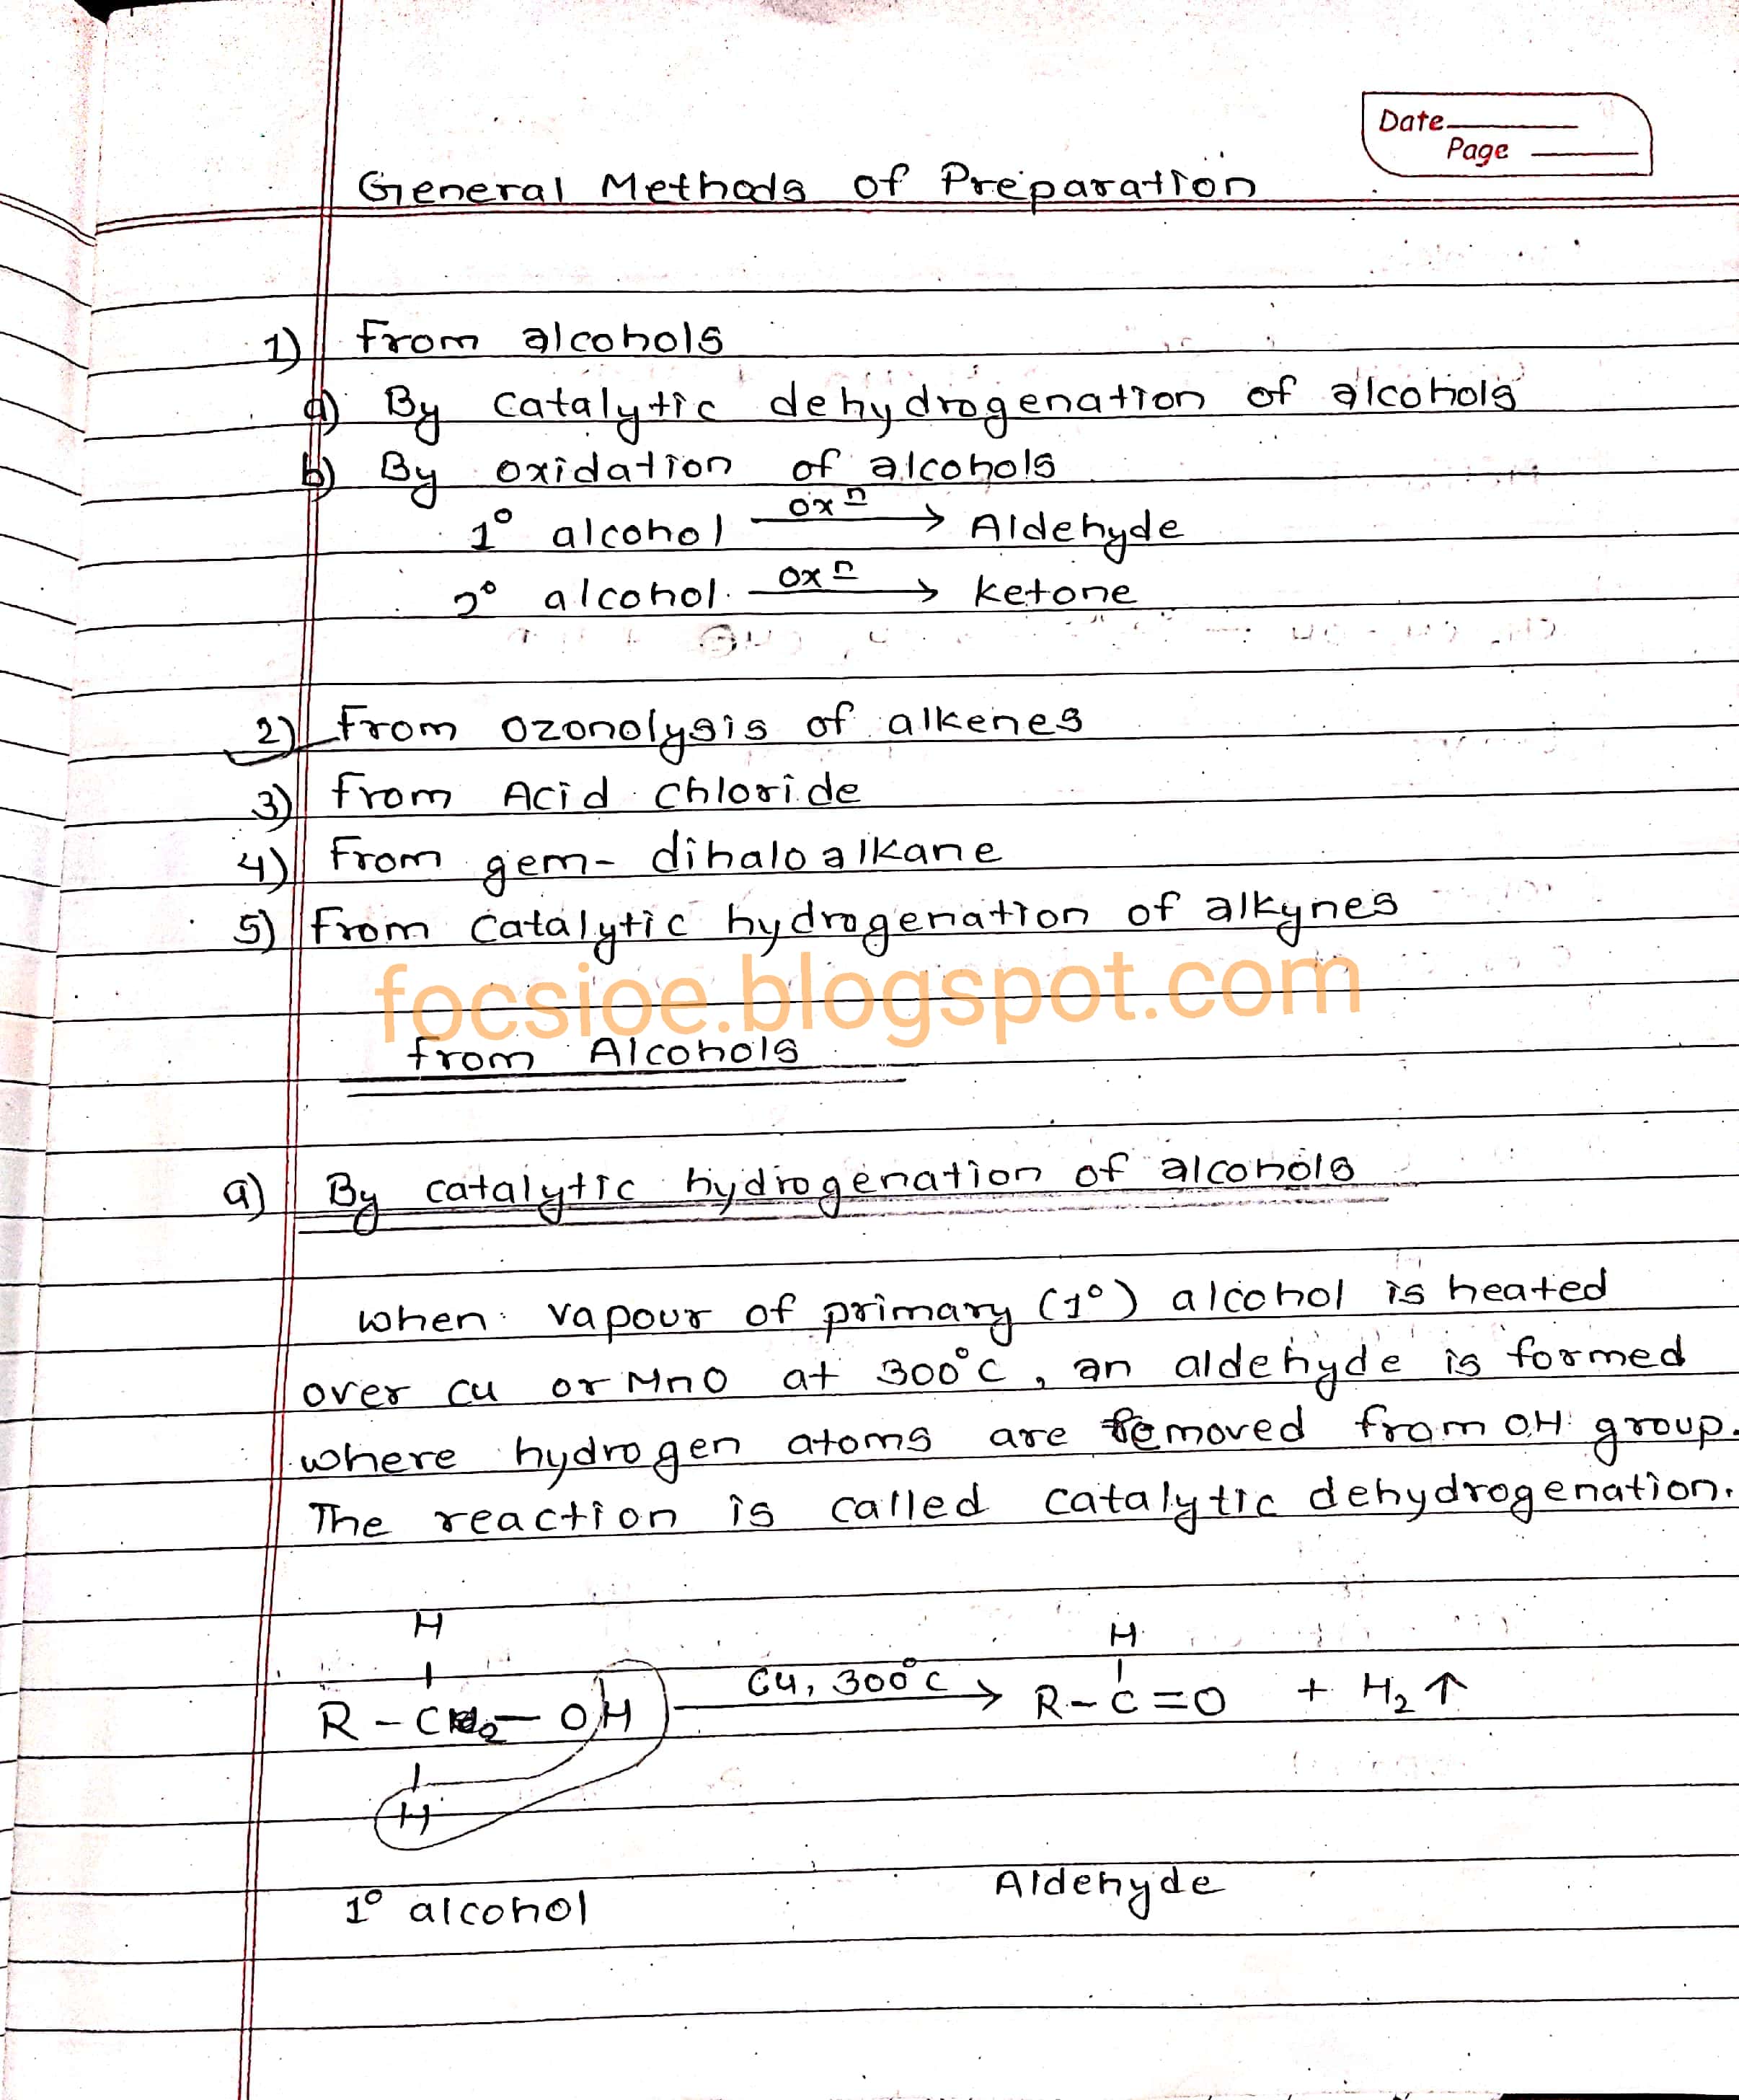 Date
Page
General Methods of Preparation
1) From alcohols
a) By catalytic dehydrogenation of alcohols
b) By oxidation of alcohols
1° alcohol oxn → Aldehyde
2° alcohol oxn → ketone
2) From ozonolysis of alkenes
3) From Acid chloride
4) From gem-dihaloalkane
5) From catalytic hydrogenation of alkynes
focsioe.blogspot.com
From Alcohols
a) By catalytic hydrogenation of alcohols
when vapour of primary (1°) alcohol is heated
over cu or MnO at 300°C, an aldehyde is formed
where hydrogen atoms are removed from OH group.
The reaction is called catalytic dehydrogenation.
H H
R - C - OH Cu, 300°C → R - C = O + H₂ ↑
H
1° alcohol Aldehyde